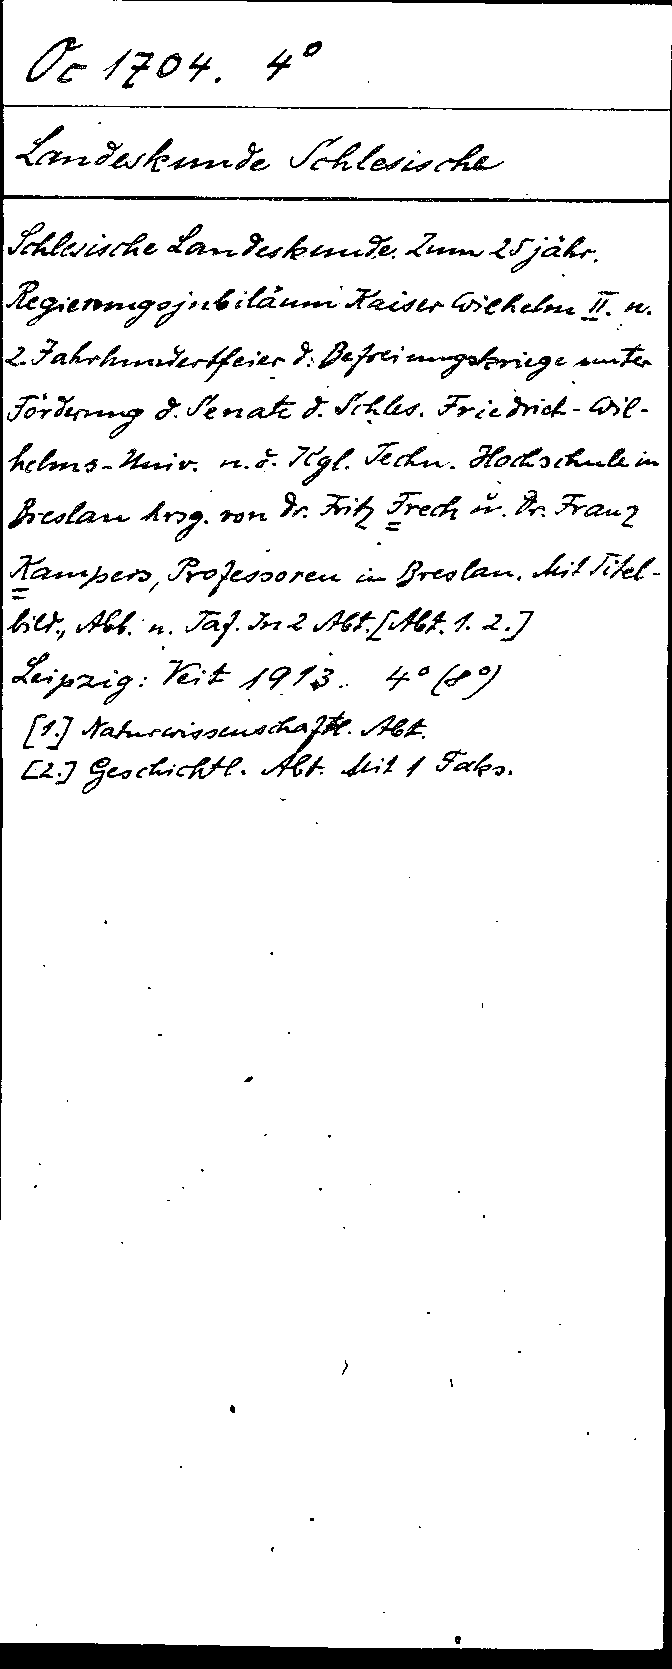 Oc 1704. 4°
Landeskunde Schlesische
Schlesische Landeskunde. Zum 25jähr.
Regierungsjubiläum Kaiser Wilhelm II. u.
z. Jahrhundertfeier d. Befreiungskriege unter
Förderung d. Senate d. Schles. Friedrich-Wil-
helms-Univ. u. d. Kgl. Techn. Hochschule in
Breslau hrsg. von Dr. Fritz Frech u. Dr. Franz
Kampers, Professoren in Breslau. Mit Titel-
bild, Abb. u. Taf. In 2 Abt. [Abt. 1. 2.]
Leipzig: Veit 1913. 4° (8°)
[1.] Naturwissenschaftl. Abt.
[2.] Geschichtl. Abt. Mit 1 Faks.